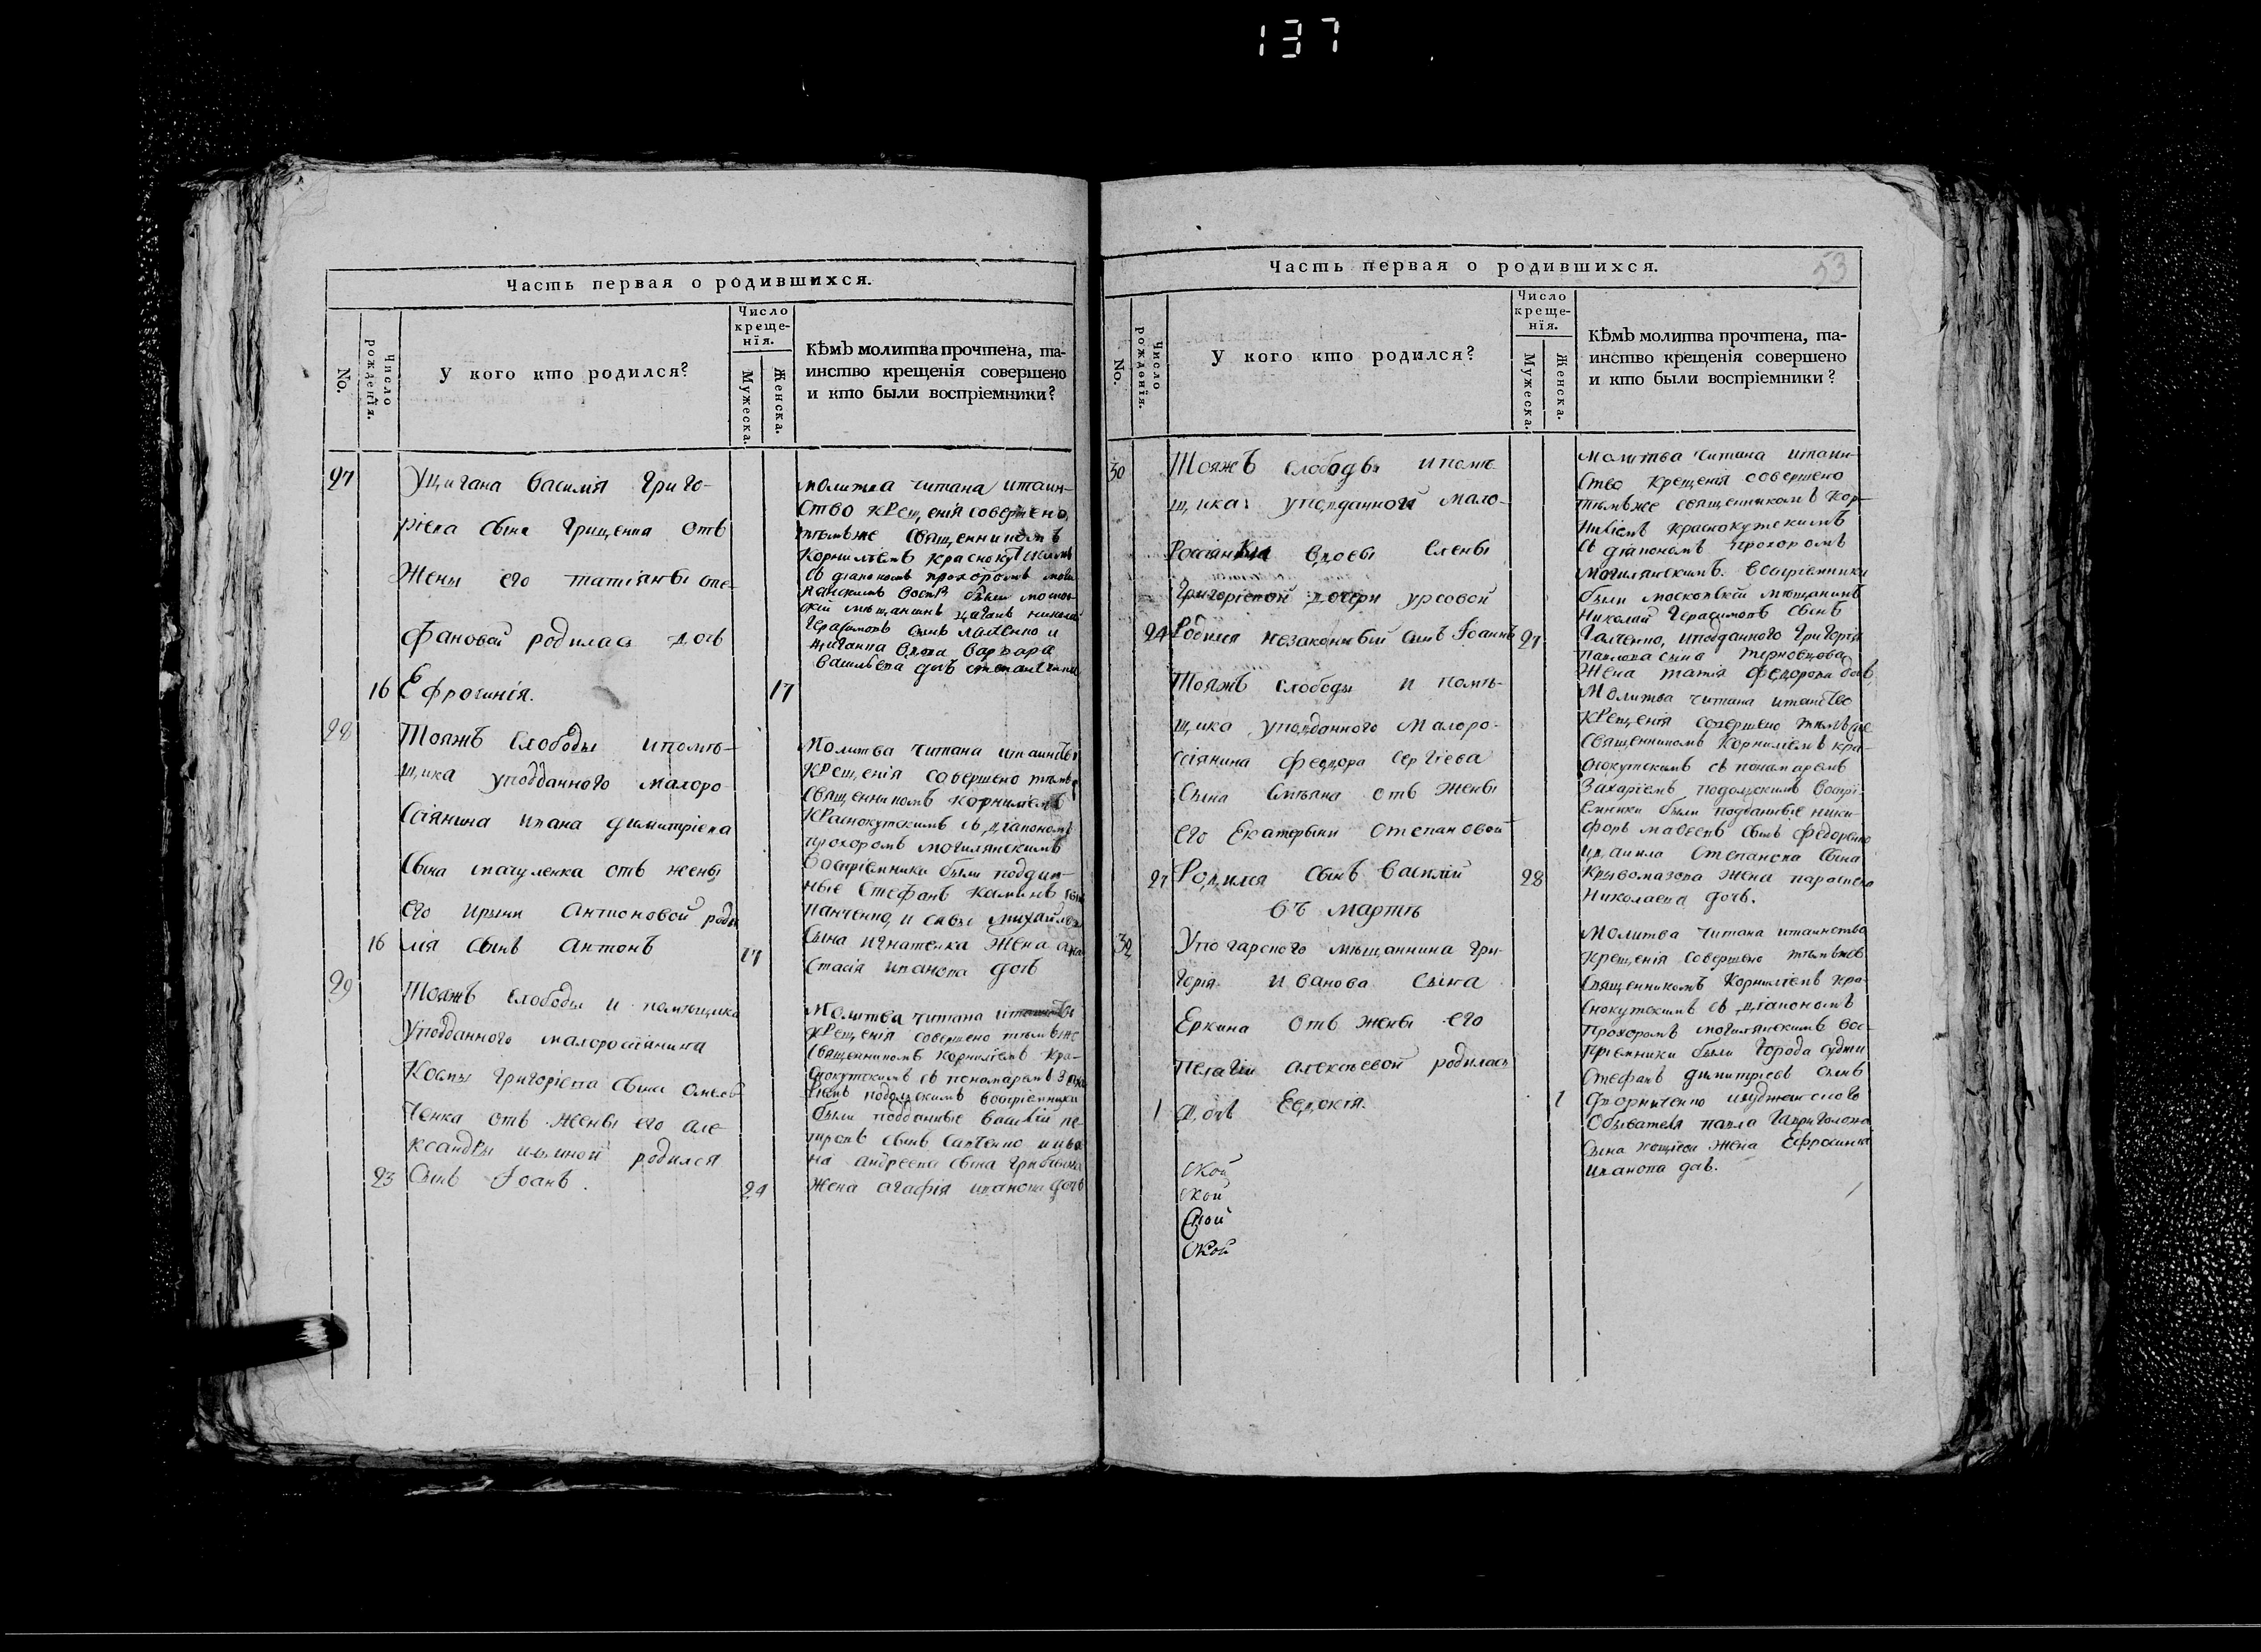 137
Часть первая о родившихся.
No.
Число рожденїя.
У кого кто родился?
Число
креще-
нїя.
Мужеска.
Женска.
Кѣмъ молитва прочтена, та-
инство крещенїя совершено
и кто были воспрїемники?
27
Уцигана Василия Григо-
рїева сына Грищенка отъ
Жены его татїяны сте-
фановой родилась дочь
16 Ефросинїя. 17
молитва читана итаин-
ство крещенїя совершено
тѣмъже священникомъ
Корнилїемъ Краснокутскимъ
съ дїакономъ прохоромъ
были
мѣщанинъ цыганъ николай
Герасимовъ сынъ и
цыганка вдова варвара
васильева дочь
28
Тояжъ слободы ипомѣ-
щика уподданного малоро
ссїянина ивана димитрїева
сына отъ жены
его ирины Антоновой роди
16 лся сынъ Антонъ 17
Молитва читана итаинство
крещенїя совершено тѣмъже
священникомъ Корнилїемъ
Краснокутскимъ съ дїакономъ
прохоромъ могилянскимъ
воспрїемники были поддан-
ные Стефанъ сынъ
панченко, и савы михайлова
сына игнатенка жена
стасїя иванова дочь
29
Тояжъ слободы и помѣщика
Уподданного малоросїянина
Космы Григорїева сына
ченка отъ жены его але-
ксандры ильиной родился
23 Сынъ Іоанъ. 24
Молитва читана
крещенїя совершено тѣмъже
священникомъ Корнилїемъ Кра-
снокутскимъ съ пономаремъ Заха
рїемъ подольскимъ воспрїемники
были подданные василїй пе-
тровъ сынъ савченко и ива
на андреева сына
жена агафїя иванова дочь
Часть первая о родившихся.
53
No.
Число рожденїя.
У кого кто родился?
Число
креще-
нїя.
Мужеска.
Женска.
Кѣмъ молитва прочтена, та-
инство крещенїя совершено
и кто были воспрїемники?
30
Тояжъ слободы ипомѣ-
щика уподданной мало-
россїянки вдовы Елены
Григорїевой дочери урсовой
24 Родился незаконный сынъ Іоаннъ 27
молитва читана итаин-
ство крещенїя совершено
тѣмъже священникомъ Кор-
нилїемъ краснокутскимъ
съ дїакономъ прохоромъ
могилянскимъ. воспрїемники
были московскїй мѣщанинъ
николай Герасимовъ сынъ
Галченко, иподданного Григорїя
павлова сына терновцова
жена федорова дочь
Тояжъ слободы и помѣ-
щика уподданного Малоро-
ссїянина феодора Сергїева
Сына отъ жены
его Екатерыны Степановой
27 Родился сынъ василїй 28
Молитва читана итаинство
крещенїя совершено тѣмъже
священникомъ Корнилїемъ кра-
снокутскимъ съ пономаремъ
Захарїемъ подольскимъ воспрї-
емники были подданные ники-
форъ сынъ федоренко
идашла степанова сына
кривомазова жена
николаева дочь.
въ мартѣ
32
мѣщанина Гри-
горїя иванова сына
Еркина отъ жены его
пелагїи алексѣевой родилась
1 Дочь Евдокїя. 1
Молитва читана итаинство
крещенїя совершено тѣмъже
священникомъ Корнилїемъ кра-
снокутскимъ съ дїакономъ
прохоромъ могилянскимъ вос-
прїемники были города суджи
стефанъ димитрїевъ сынъ
исуджанского
обывателя павла
сына жена Ефросинїя
иванова дочь.
ской
ской
ской
ской